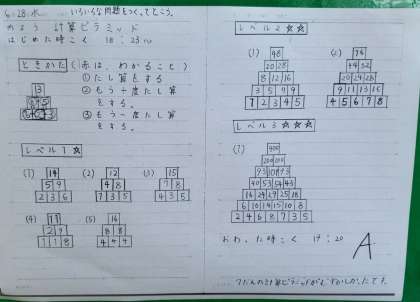 6.28.水
いろいろな問題をつくってとこう。
めあて 計算ピラミッド
はじめた時こく 18:23
ときかた (赤は、わかること)
① たし算をする
② もう一度たし算をする。
③ もう一度たし算をする。
13
レベル1 ☆
(1) 14
5 9
2 3 6
(2) 12
4 8
1 3 5
(3) 15
7 8
4 3 5
(4) 11
2 9
1 1 8
(5) 16
8 8
4 4 4
レベル2 ☆☆
(1) 48
20 28
8 12 16
3 5 7 9
1 2 3 4 5
(2) 96
44 52
20 24 28
9 11 13 15
4 5 6 7 8
レベル3 ☆☆☆
(1) 400
200 200
93 107 93
40 53 54
16 24 29 25 18
6 10 14 15 10 8
2 4 6 8 7 3 5
おわった時こく 19:20
A
7だんの計算ピラミッドがむずかしかったです。